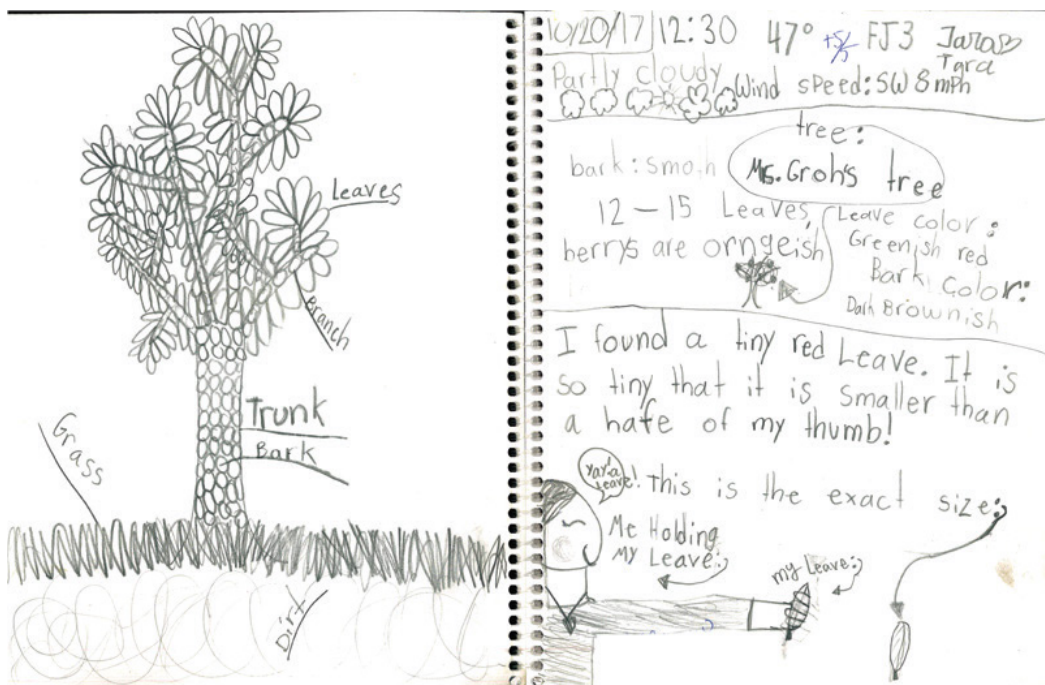 Leaves
Branch
Trunk
Bark
Grass
Dirt
10/20/17 12:30 47° +5/5 FJ3 Tara
Tara
Partly cloudy Wind speed: SW 8 mph
tree:
Ms. Groh's tree
bark: smoth
12 – 15 Leaves,
berrys are orngeish
Leave color:
Greenish red
Bark color:
Dark Brownish
I found a tiny red Leave. It is
so tiny that it is smaller than
a hafe of my thumb!
Yay! a
Leave!
This is the exact size:
Me Holding
My Leave:
my Leave: